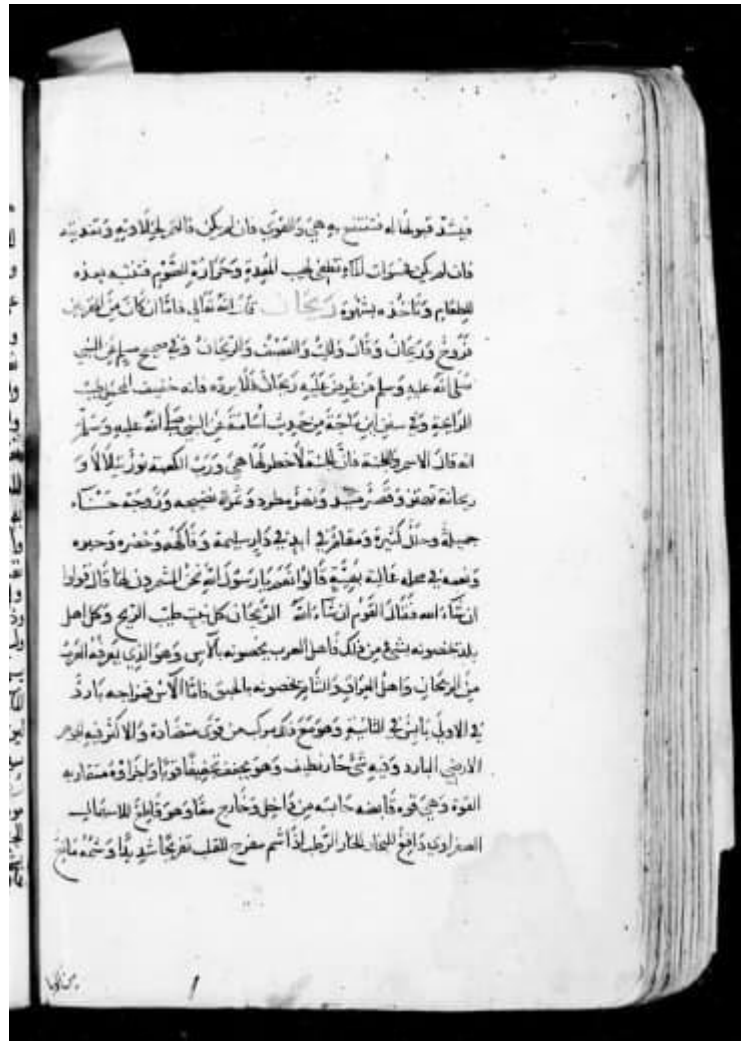 فيشتد قبولها له فتنتفع به هي والقوى فان لم يكن فالتمر لحلاوته وتغذيته
فان لم يكن فحسوات الماء تطفئ لهيب المعدة وحرارة الصوم فتنتبه بعده
للطعام وتأخذه بشهوة ريحان قال الله تعالى فاما ان كان من المقربين
فروح وريحان وقال والحب ذو العصف والريحان وفي صحيح مسلم عن النبي
صلى الله عليه وسلم من عرض عليه ريحان فلا يرده فانه خفيف المحمل طيب
الرائحة وفي سنن ابن ماجة من حديث أسامة عن النبي صلى الله عليه وسلم
انه قال الا مشمر للجنة فان الجنة لا خطر لها هي ورب الكعبة نور يتلألأ و
ريحانة تهتز وقصر مشيد ونهر مطرد وثمرة نضيجه وزوجة حسناء
جميلة وحلل كثيرة ومقام في ابد في دار سليمة وفاكهة وخضره وحبره
ونعمه في محله عالية بهية قالوا نعم يا رسول الله نحن المشمرون لها قال قولوا
ان شاء الله فقال القوم ان شاء الله الريحان كل نبت طيب الريح وكل اهل
بلد تخصونه بشئ من ذلك فاهل الغرب يخصونه بالآس وهو الذي يعرفه العرب
من الريحان واهل العراق والشام تخصونه بالحبق فاما الآس فمزاجه بارد
في الاولى يابس في الثانية وهو مع ذلك مركب من قوى متضادة والاكثر فيه الجوهر
الارضي البارد وفيه شئ حار لطيف وهو يجفف تجفيفا قويا واجزاؤه متقاربه
القوة وهي قوه قابضه حابسه من داخل وخارج معا وهو قاطع للاسهال
الصفراوي دافع للبخار الحار الرطب اذا شم مفرح للقلب تفريحا شديدا وشمه مانع